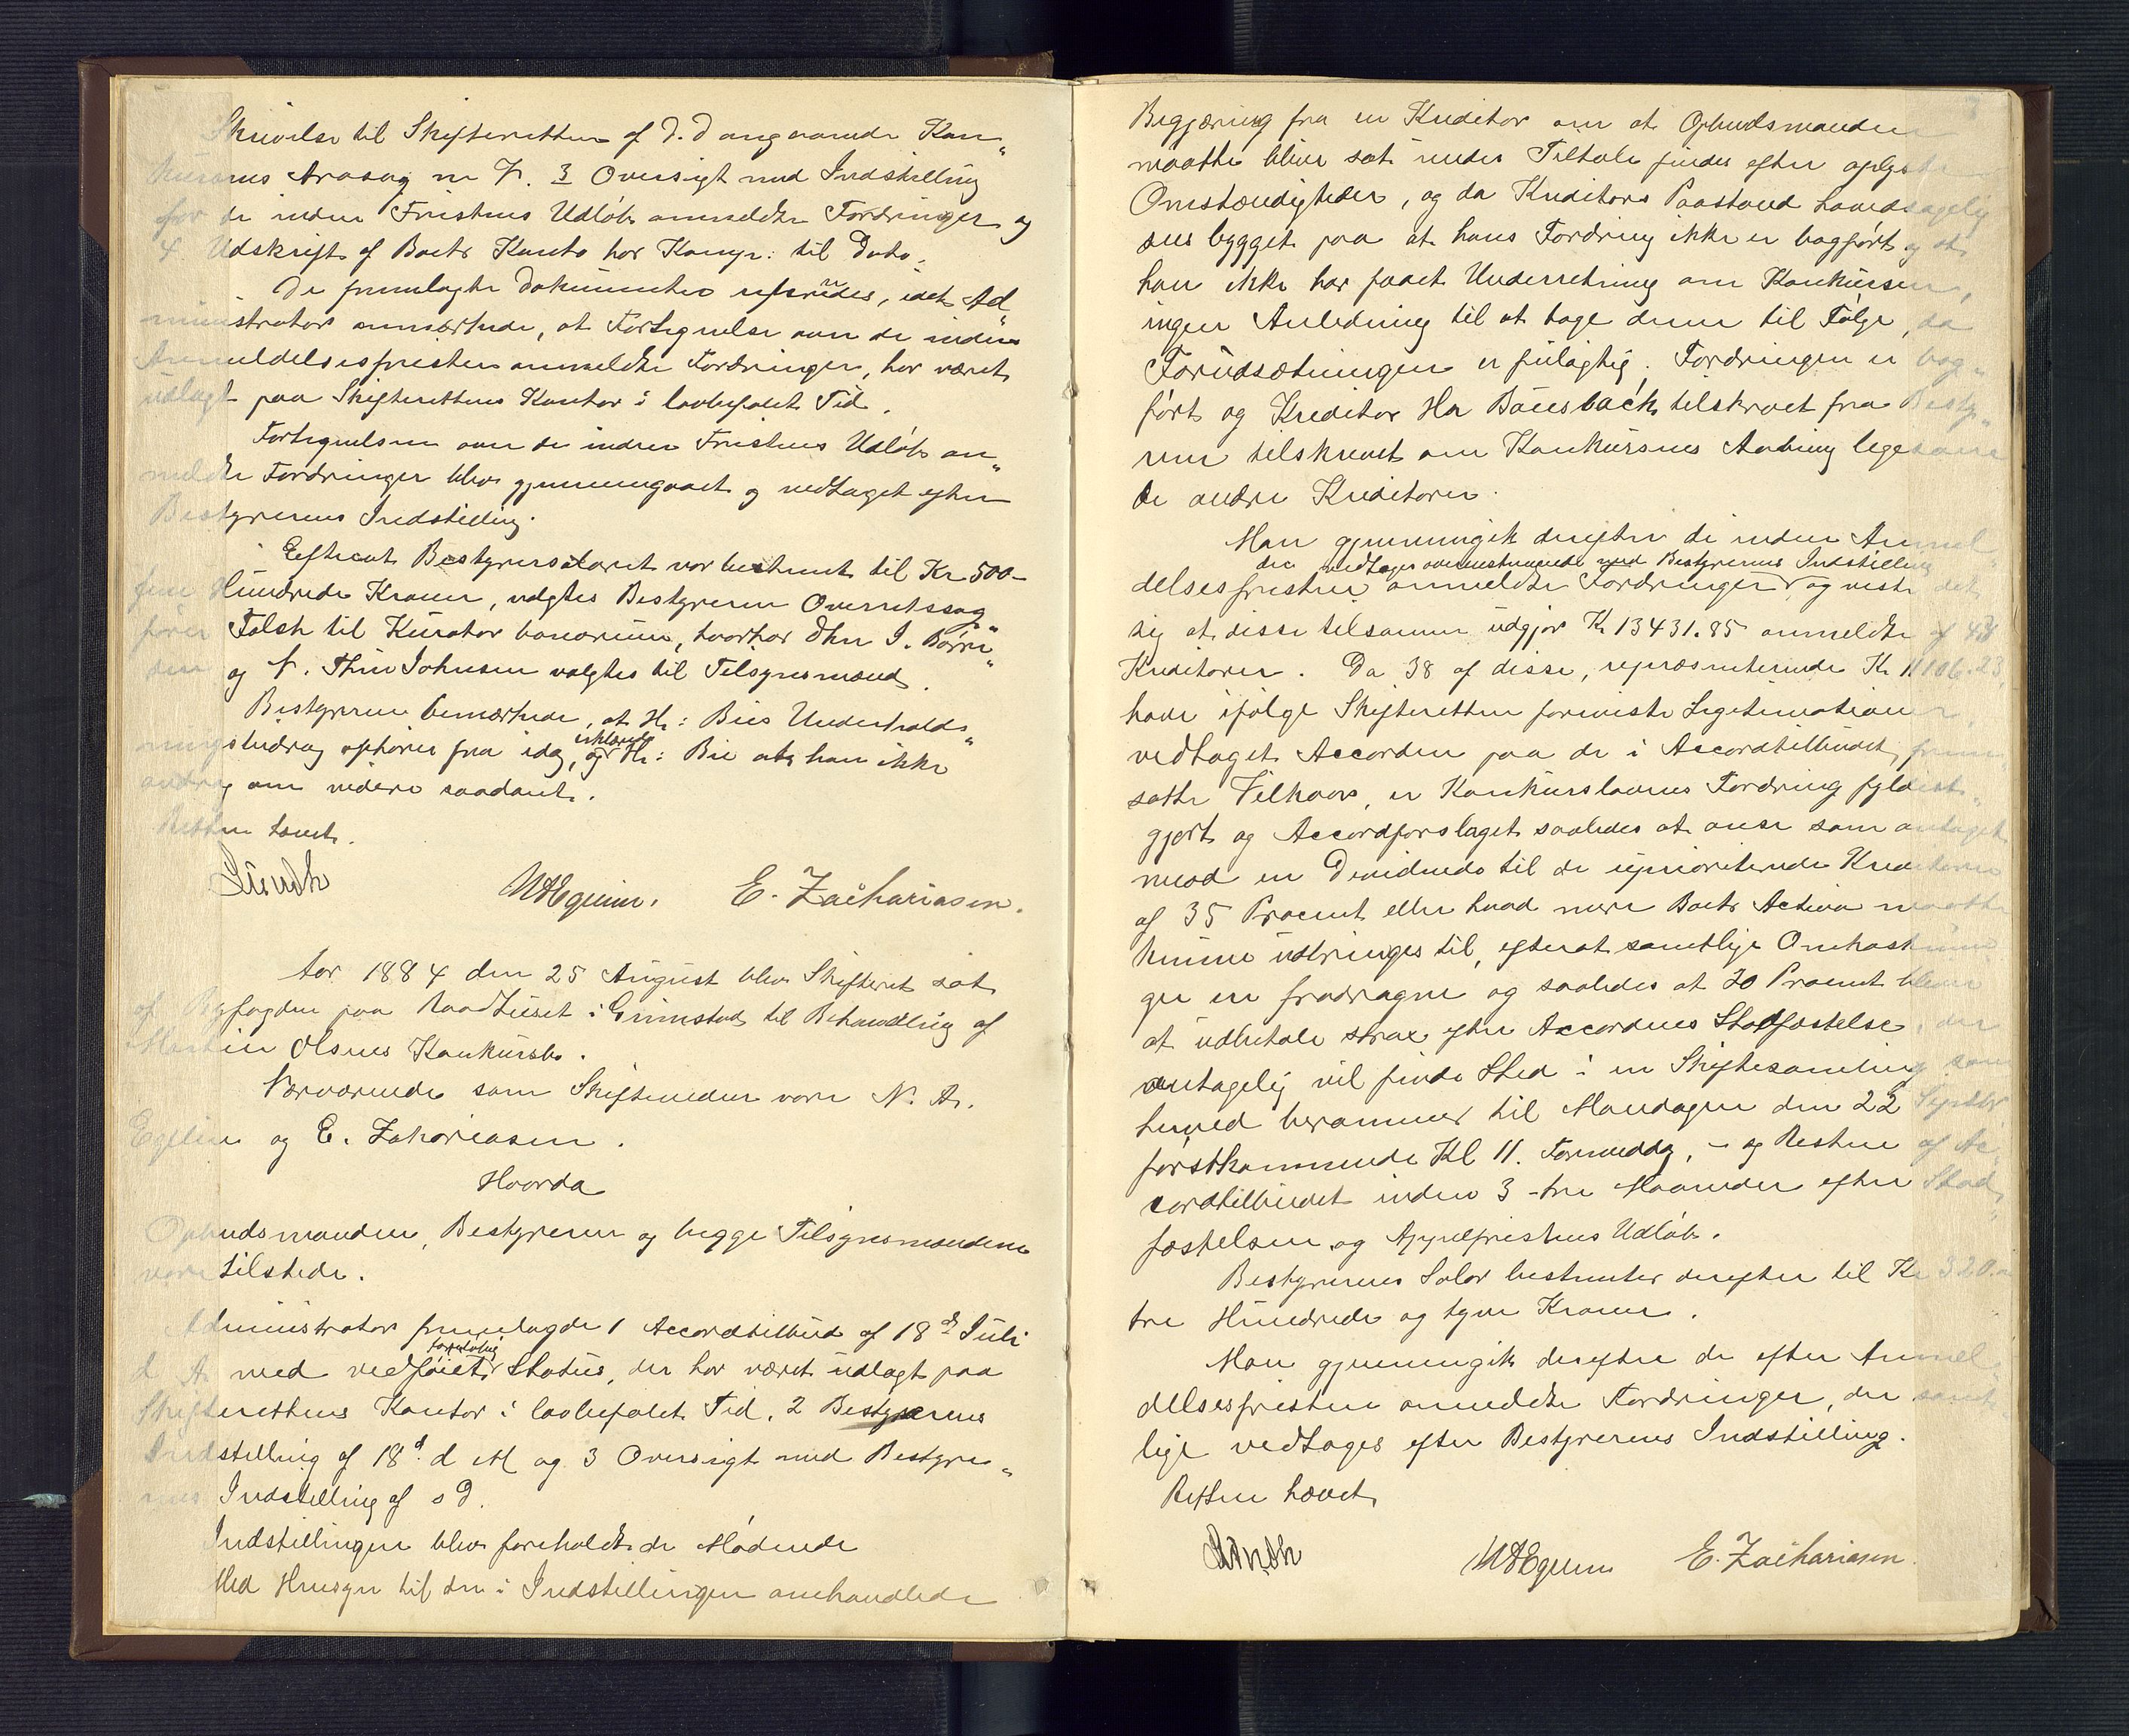 Skrivelse til Skifteretten af d. D angaaende Kon„
kursens Aarsag m V. 3 Oversigt med Indstilling
for de inden Fristens Udløb anmeldte Fordringer og
4 Udskrift af Boets Konto hos Kæmn: til Dato.
De fremlagte Dokumenter refereredes, idet Ad„
ministrator anmærkede, at Fortegnelse over de inden
Anmeldelsesfristen anmeldte Fordringer, har været
udlagt paa Skifterettens Kontor i lovbefalet Tid.
Fortegnelsen over de inden Fristens Udløb an„
meldte Fordringer blev gjennemgaaet og vedtaget efter
Bestyrerens Indstilling.
Efterat Bestyrersalæret var bestemt til Kr 500 –
fem Hundrede Kroner, valgtes Bestyreren Overretssag„
fører Falsk til Kurator bonorum, hvorhos Dhrr J. Børre„
den og V. Thor Johnsen valgtes til Tilsynsmænd.
Bestyreren bemærkede, at Hr: Bies Underholds„
ningsbidrag ophører fra idag, og erklærede Hr: Bie at han ikke
androg om videre saadant.
Retten hævet.
N A Egelien. E. Zachariasen.
Aar 1884 den 25 August blev Skifteret sat
af Byfogden paa Raadhuset i Grimstad til Behandling af
Martin Olsens Konkursbo.
Nærværende som Skiftevidner vare N. A.
Egelien og E. Zakariasen.
Hvorda
Opbudsmanden, Bestyreren og begge Tilsynsmændene
vare tilstede.
Administrator fremlagde 1 Accordtilbud af 18de Juli
d A med vedføiet foreløbig Status, der har været udlagt paa
Skifterettens Kontor i lovbefalet Tid, 2 Bestyrerens
Indstilling af 18d. d M og 3 Oversigt med Bestyre„
rens Indstilling af s D.
Indstillingen blev foreholdt de Mødende
Med Hensyn til den i Indstillingen omhandlede
Begjæring fra en Kreditor om at Opbudsmanden
maatte blive sat under Tiltale findes efter oplyste
Omstændigheder, og da Kreditors Paastand hovedsagelig
sees bygget paa at hans Fordring ikke er bogført og at
han ikke har faaet Underretning om Konkursen,
ingen Anledning til at tage denne til Følge, da
Forudsætningen er feilagtig. Fordringen er bog„
ført og Kreditor Hr Bausback tilskrevet fra Besty„
reren tilskrevet om Konkursens Aabning ligesom
de andre Kreditorer.
Man gjennemgik derefter de inden Anmel„
delsesfristen anmeldte Fordringer, der vedtages overensstemmende med Bestyrerens Indstilling og viste det
sig at disse tilsammen udgjør Kr 13431.85 anmeldte af 43
Kreditorer. Da 38 af disse, repræsenterende Kr 11106.23,
have ifølge Skifteretten foreviste Legitimationer,
vedtaget Accorden paa de i Accordtilbudet frem
satte Vilkaar, er Konkurslovens Fordring fyldest„
gjort og Accordforslaget saaledes at anse som antaget
mod en Dividende til de uprioriterede Kreditorer
af 35 Procent eller hvad mere Boets Activa maatte
kunne udbringes til, efterat samtlige Omkostnin
ger er fradragne og saaledes at 20 Procent bliver
at udbetale strax efter Accordens Stadfæstelse, der
antagelig vil finde Sted i en Skiftesamling som
herved berammes til Mandagen den 22 Septbr
førstkommende Kl 11. Formiddag, – og Resten af Ac„
cordtilbudet inden 3 – tre Maaneder efter Stad„
fæstelsen og Appelfristens Udløb.
Bestyrerens Salær bestemtes derefter til Kr 320 –
tre Hundrede og tyve Kroner.
Man gjennemgik derefter de efter Anmel„
delsesfristen anmeldte Fordringer, der samt„
lige vedtages efter Bestyrerens Indstilling.
Retten hævet.
N A Egelien E. Zachariasen